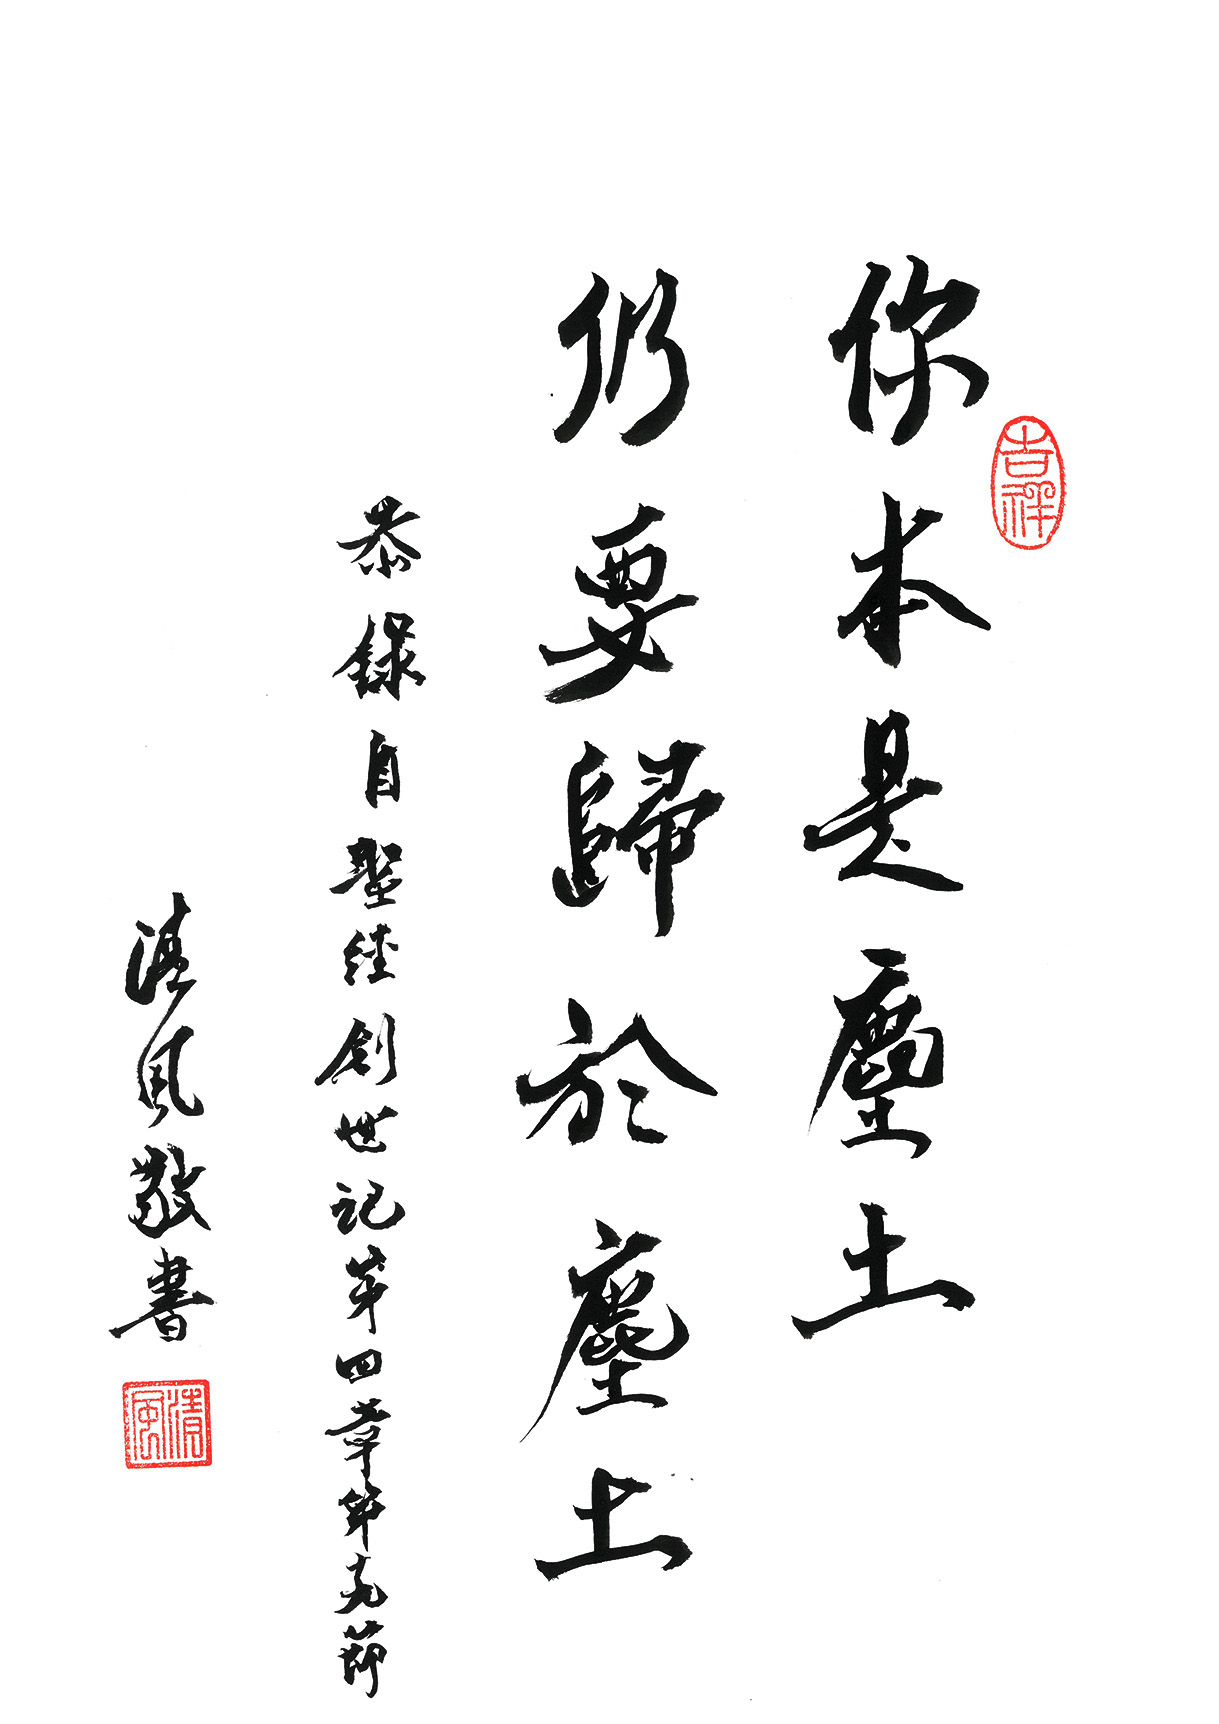 吉祥
你本是塵土
仍要歸於塵土
恭錄自聖經創世記第四章第十九節
清風敬書
清風